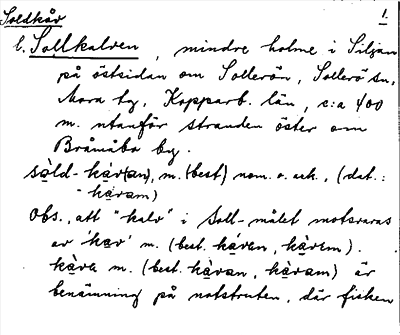 Soldkåv 1.
l. Sollkalven, mindre holme i Siljan
på östsidan om Sollerön, Sollerö sn,
Mora tg, Kopparb. län, c:a 400
m. utanför stranden öster om
Bråmåbo by.
sòld-kàv(an), m. (best) nom. o. ack., (dat.:
-kàvam)
Obs., att "kalv" i Soll-målet motsvaras
av 'kav' m. (best. káven, kàvem).
kàva m. (best. kàvan, kàvam) är
benämning på notstruten, där fisken